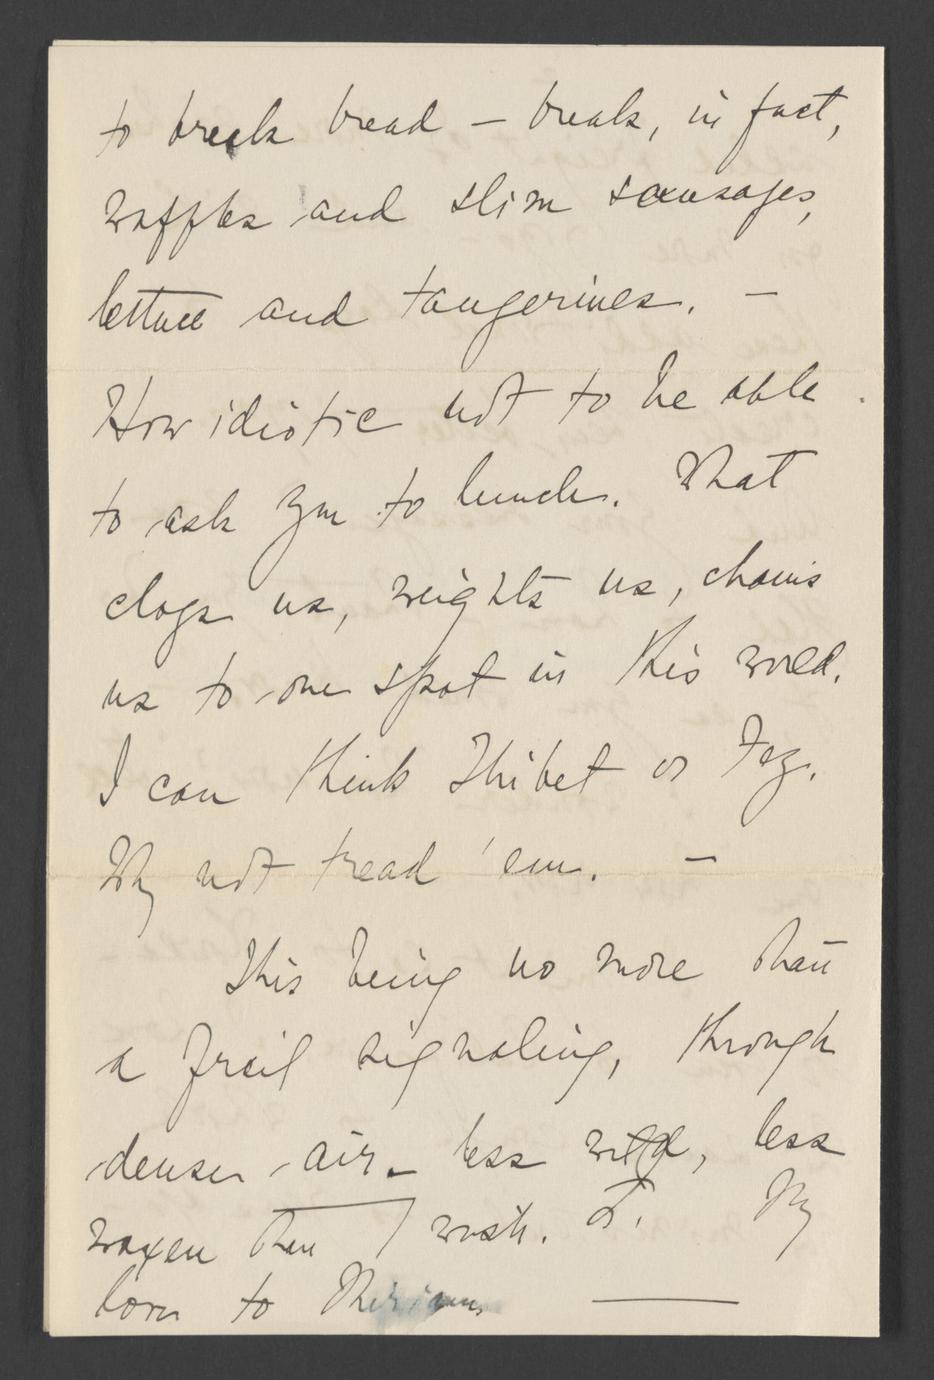 to break bread – break, in fact,
waffles and slim sausages,
lettuce and tangerines. –
How idiotic not to be able
to ask you to lunch. What
clogs us, weights us, chains
us to one spot in this world.
I can think Thibet or Fez.
Why not tread 'em. –
This being no more than
a frail signaling, through
denser air – less wild, less
waxen than I wish. L. My
love to Miriam